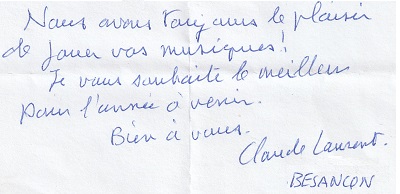 Nous avons toujours le plaisir
de jouer vos musiques!
Je vous souhaite le meilleur
pour l'année à venir.
Bien à vous.
Claude Laurent.
BESANCON